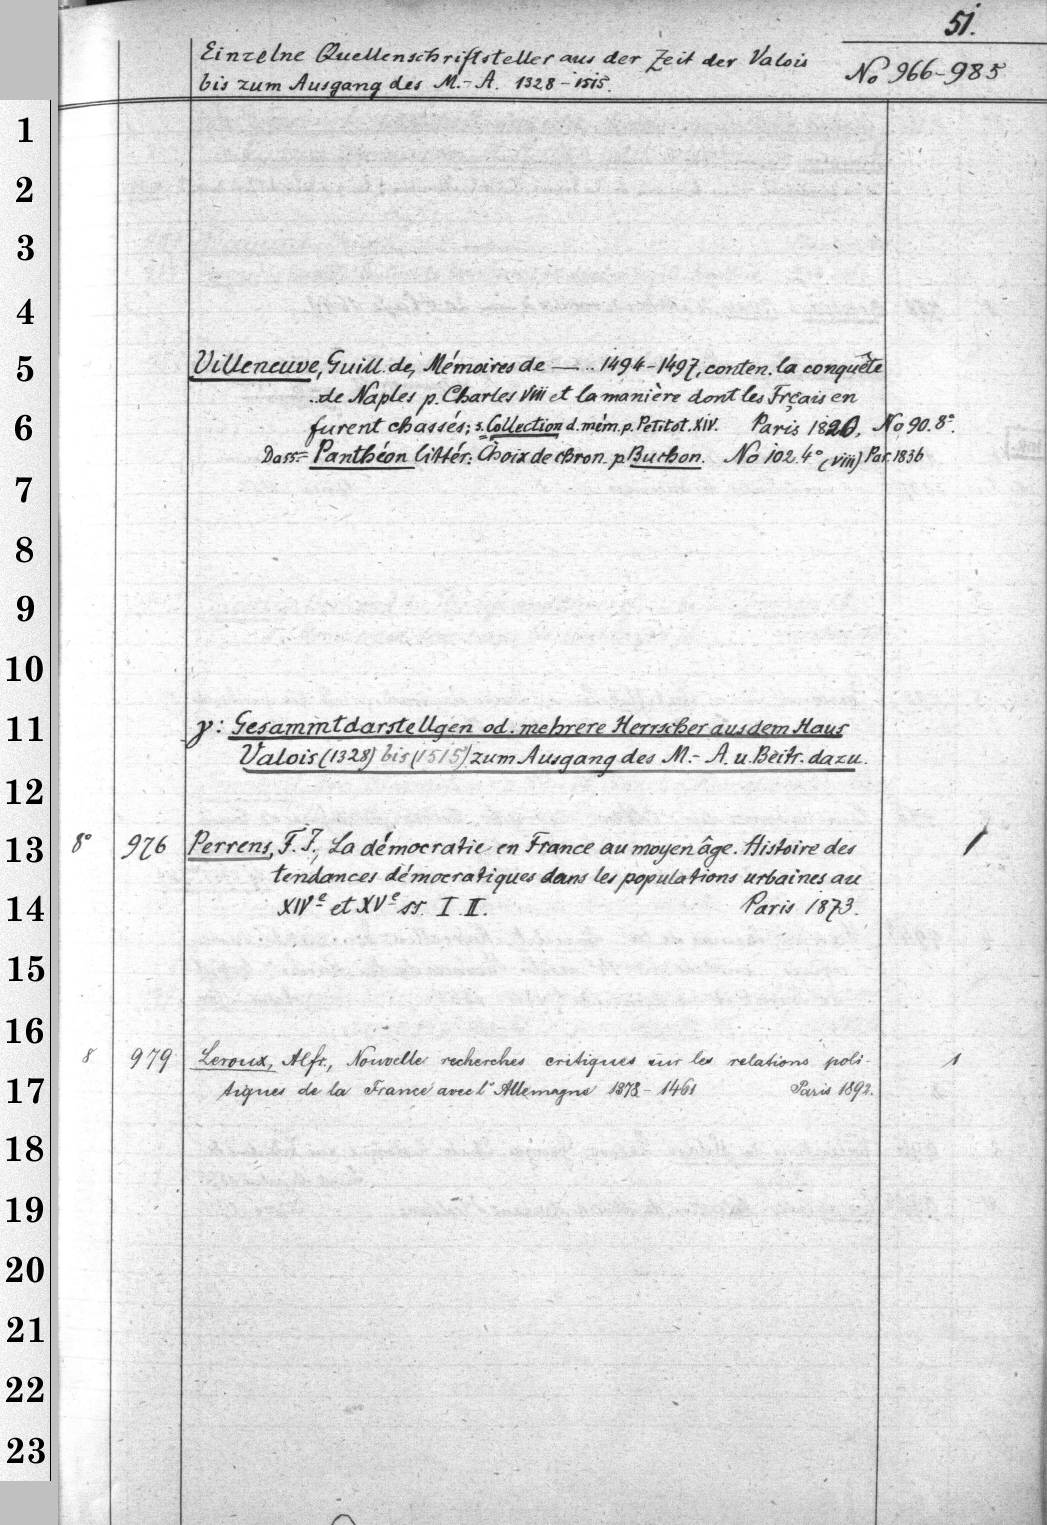 51.
Einzelne Quellenschriftsteller aus der Zeit der Valois
bis zum Ausgang des M.-A. 1328-1515.
No 966-985
1
2
3
4
5 Villeneuve, Guill. de, Mémoires de — .. 1494-1497, conten. la conquête
de Naples p. Charles VIII et la manière dont les Frçais en
6 furent chassés; s. Collection d. mém. p. Petitot. XIV. Paris 1820, No 90. 8°.
Dass = Panthéon littér: Choix de chron. p Buchon. No 102. 4° (VIII) Par. 1836
7
8
9
10
11 γ: Gesammtdarstellgen od. mehrere Herrscher aus dem Haus
Valois (1328) bis (1515) zum Ausgang des M.-A. u. Beitr. dazu.
12
13 8° 976 Perrens, F. T., La démocratie en France au moyen âge. Histoire des 1
tendances démocratiques dans les populations urbaines au
14 XIVe et XVe ss. I. II. Paris 1873.
15
16
8 979 Leroux, Alfr., Nouvelle recherches critiques sur les relations poli- 1
17 tiques de la France avec l'Allemagne 1378-1461 Paris 1892.
18
19
20
21
22
23